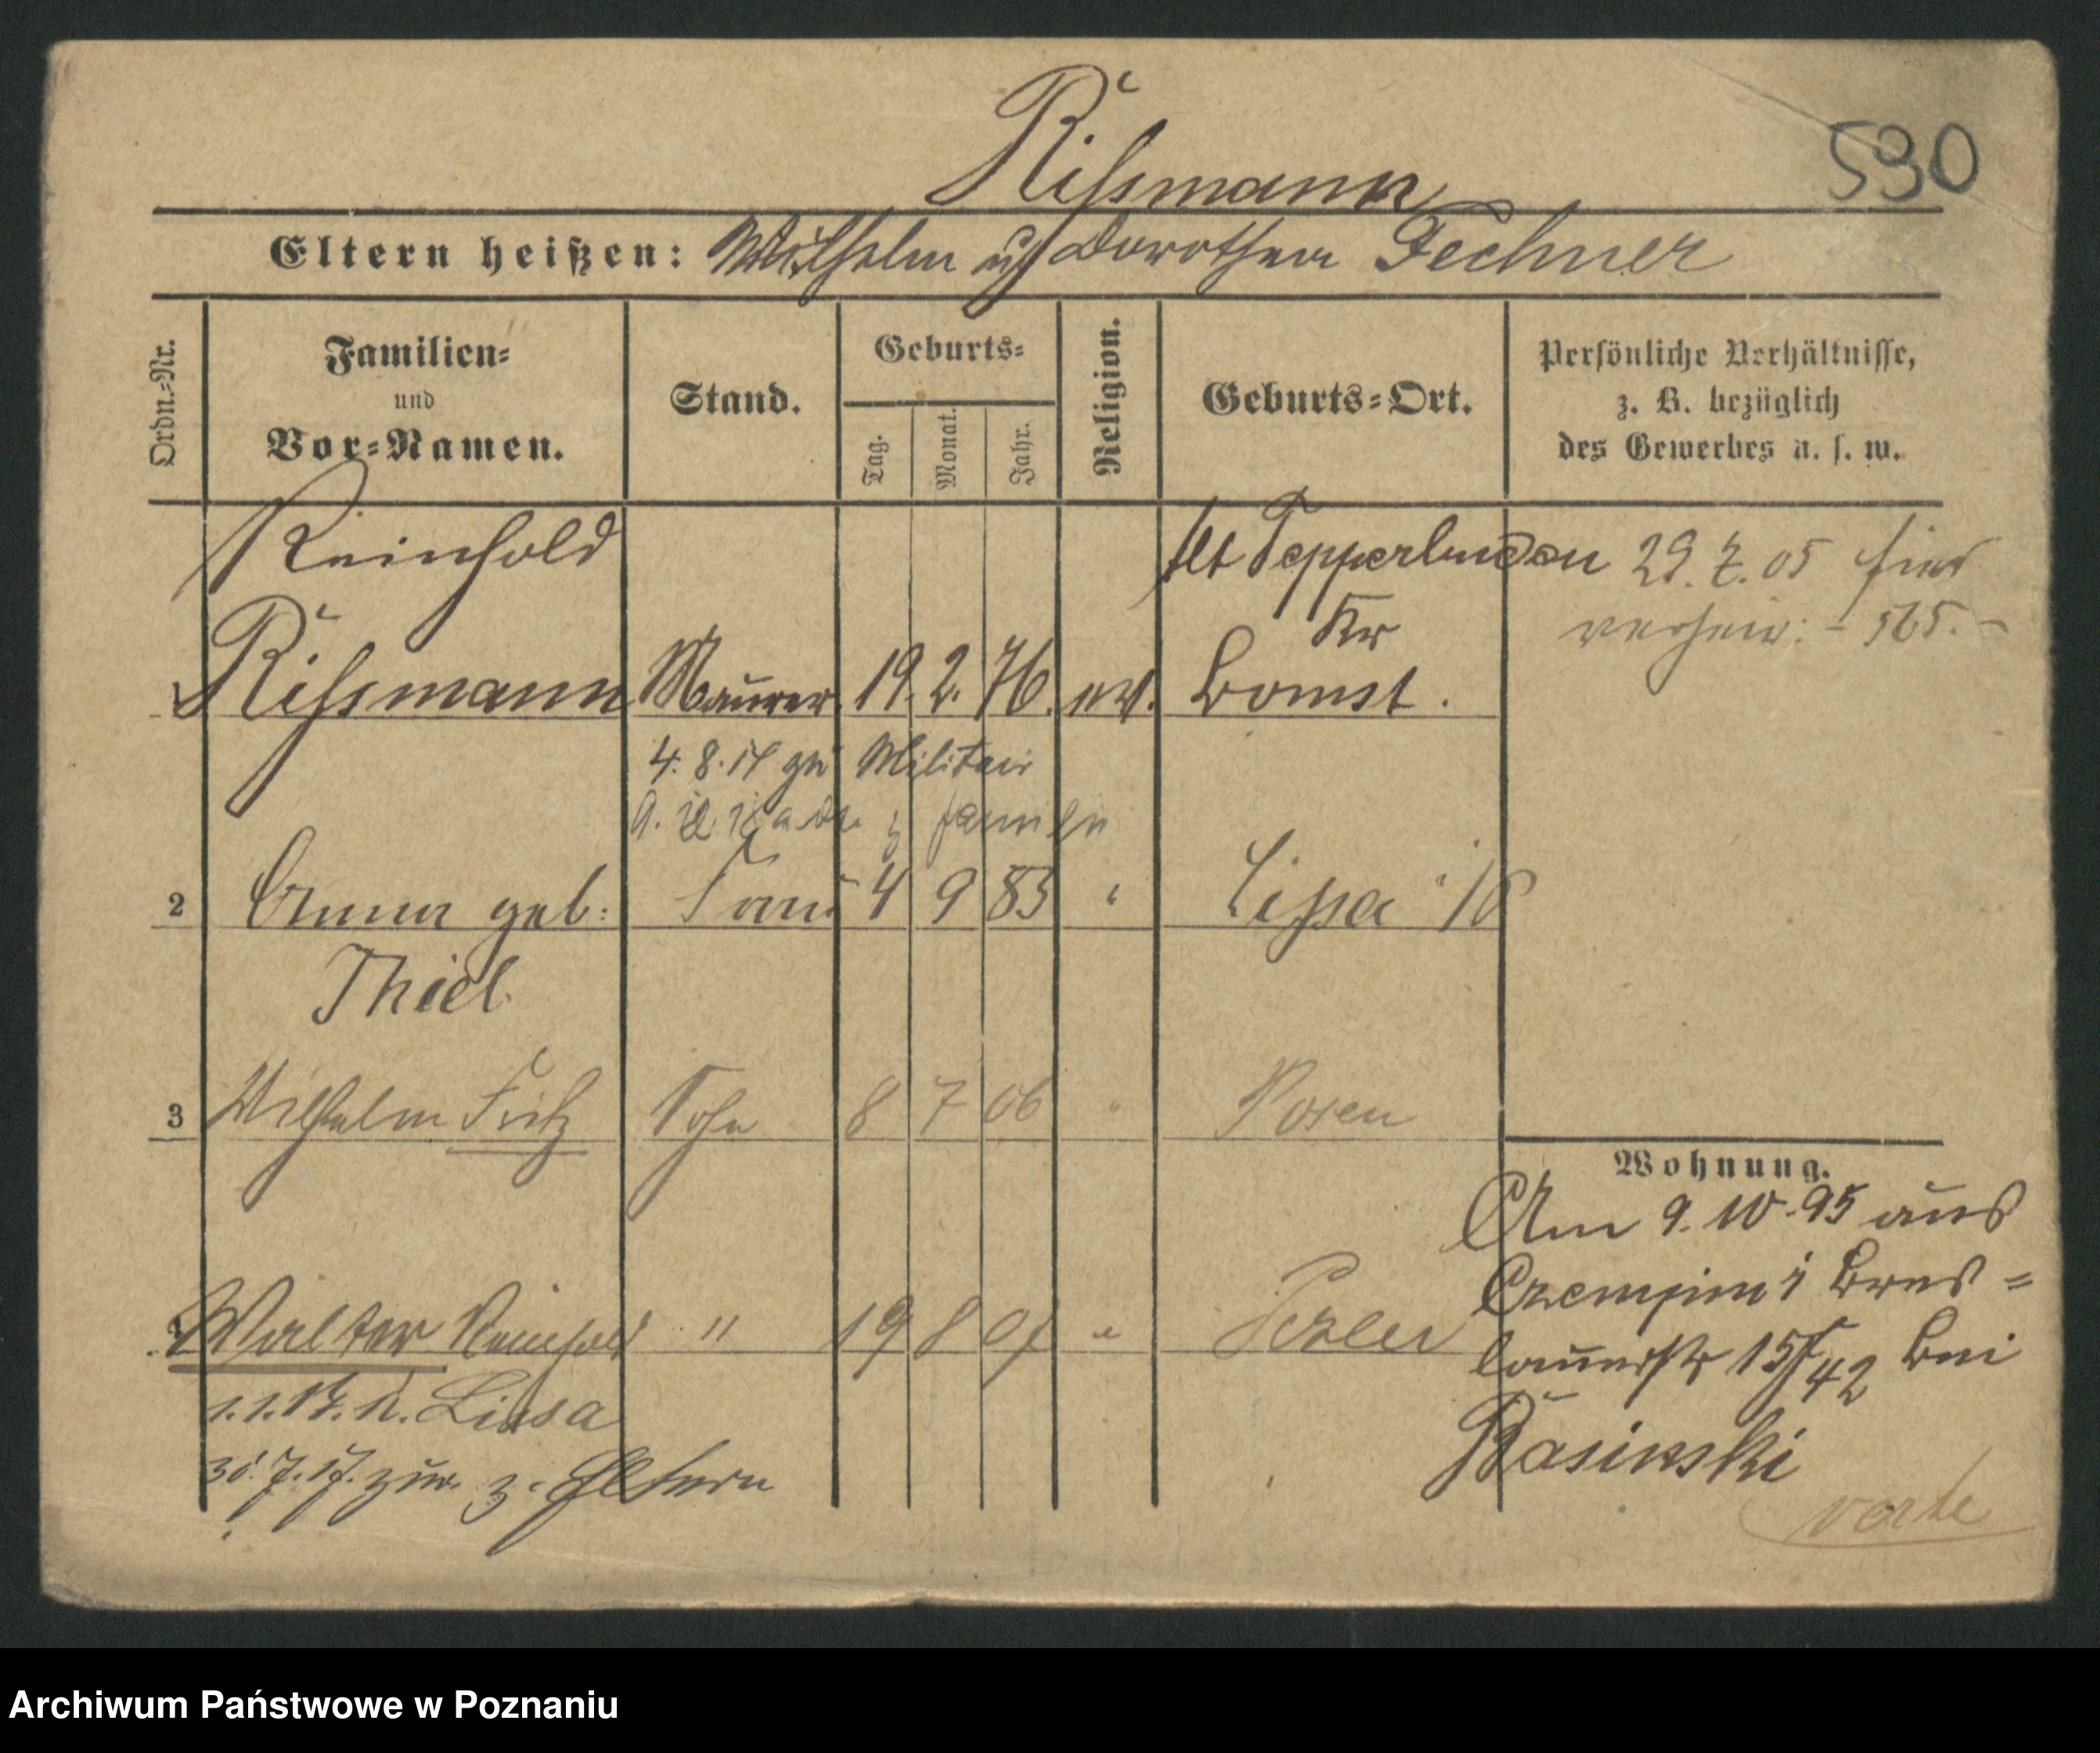 Rissmann
530
Eltern heißen: Wilhelm u Dorothea Fechner
Ordn.=Nr.
Familien=
und
Vor=Namen.
Stand.
Geburts=
Tag.
Monat.
Jahr.
Religion.
Geburts=Ort.
Persönliche Verhältnisse,
z. B. bezüglich
des Gewerbes u. s. w.
Reinhold
Alt Tepperbuden 29.7.05 hier
Kr
verheir: - 565. -
1 Rissmann Maurer 19. 2. 76. ev. Bomst.
4. 8. 14 zu Militair
2 Anna geb: Frau 4 9 83 " Lissa i/P
Thiel
3 Wilhelm Fritz Sohn 8 7 06 " Posen
Wohnung.
Am 9.10.95 aus
Czempin i Bres=
4 Walter Reinhold " 19 8 07 "
lauerstr 15/42 bei
1.1.17. n. Lissa
Basinski
30.7.17. zur. z. Eltern
Archiwum Państwowe w Poznaniu